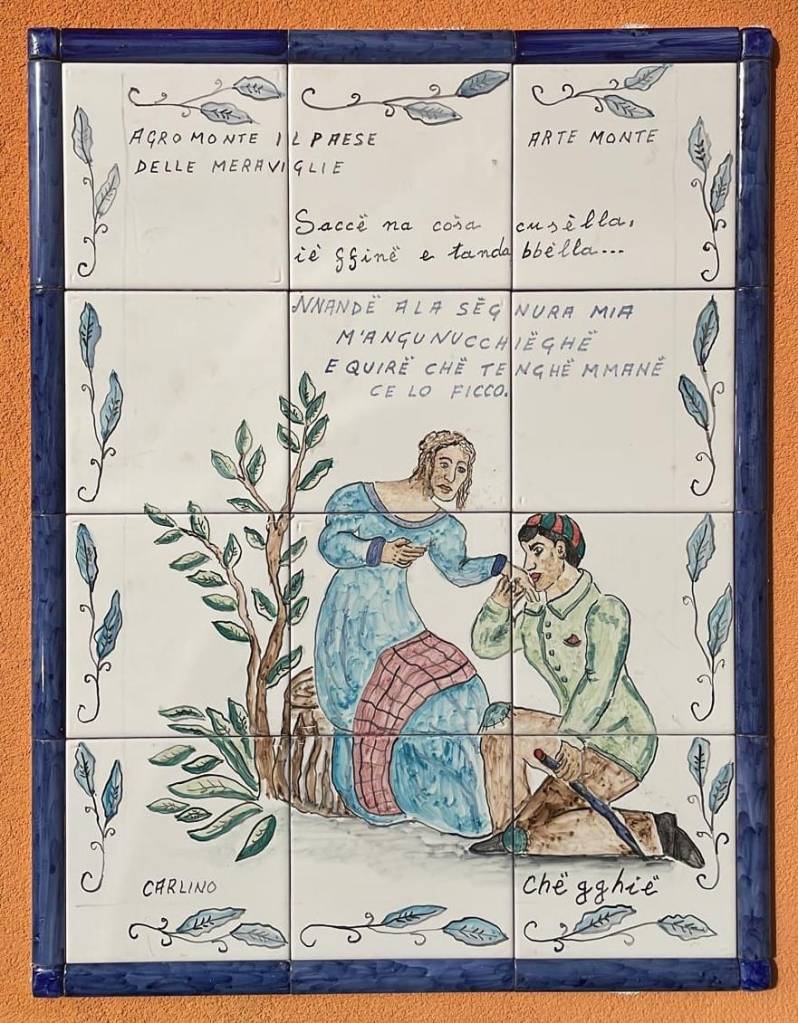 AGROMONTE IL PAESE
DELLE MERAVIGLIE
ARTE MONTE
Saccë na còsa cusèlla,
iè ffinë e tanda bbèlla...
NNANDË A LA SËGNURA MIA
M'ANGUNUCCHIËGHË
E QUIRË CHË TENGHË MMANË
CE LO FICCO.
CARLINO
Chë gghië